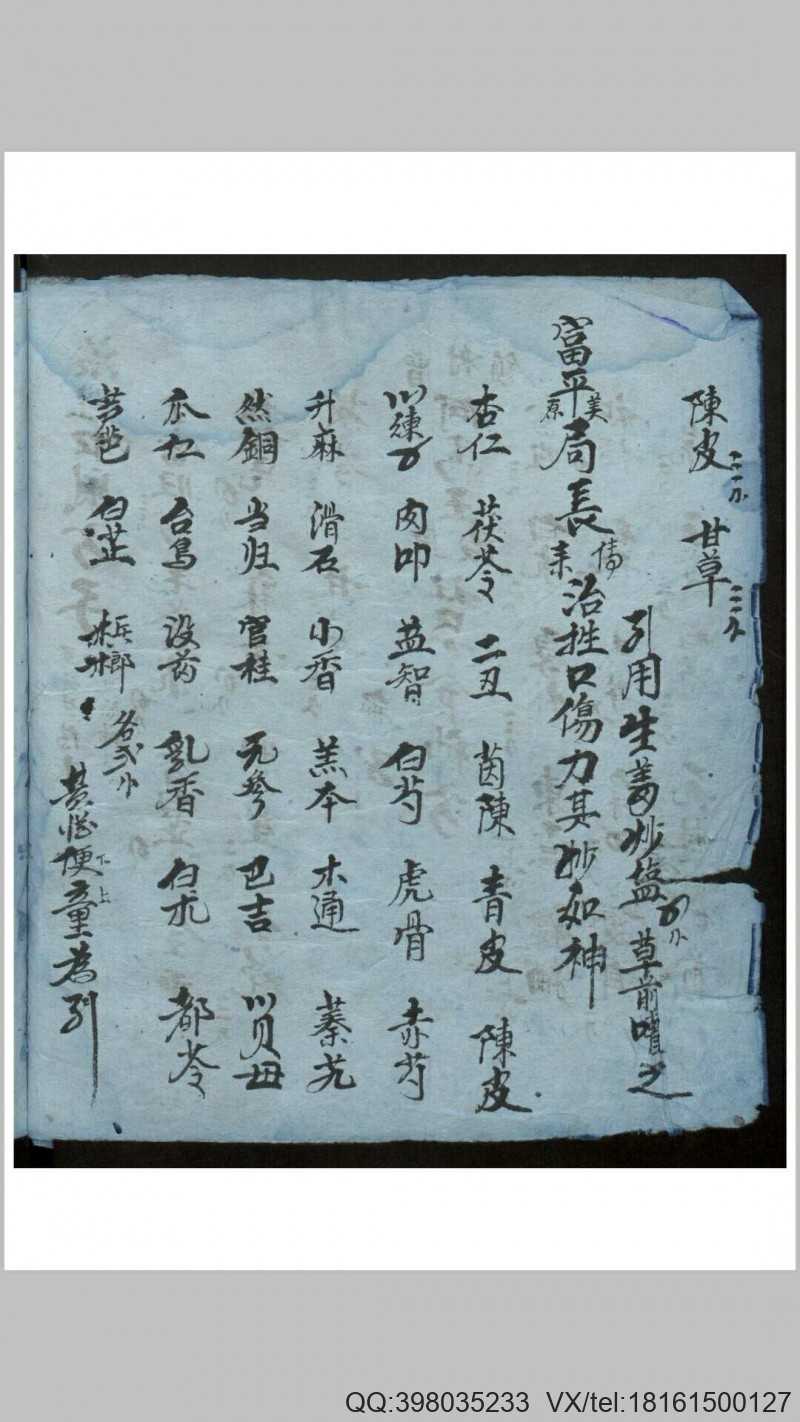 陳皮 甘草
引用生姜炒塩 草前嘈之
富平美原局長 傳来 治牲口傷力其妙如神
杏仁 茯苓 二丑 茵陳 青皮 陳皮
川練 肉叩 益智 白芍 虎骨 赤芍
升麻 滑石 小香 羔本 木通 蓁艽
然銅 当归 官桂 元參 巴吉 川贝母
瓜仁 台烏 没药 乳香 白朮 都苓
白芷 梹榔 各
便童為引
QQ:398035233 VX/tel:18161500127